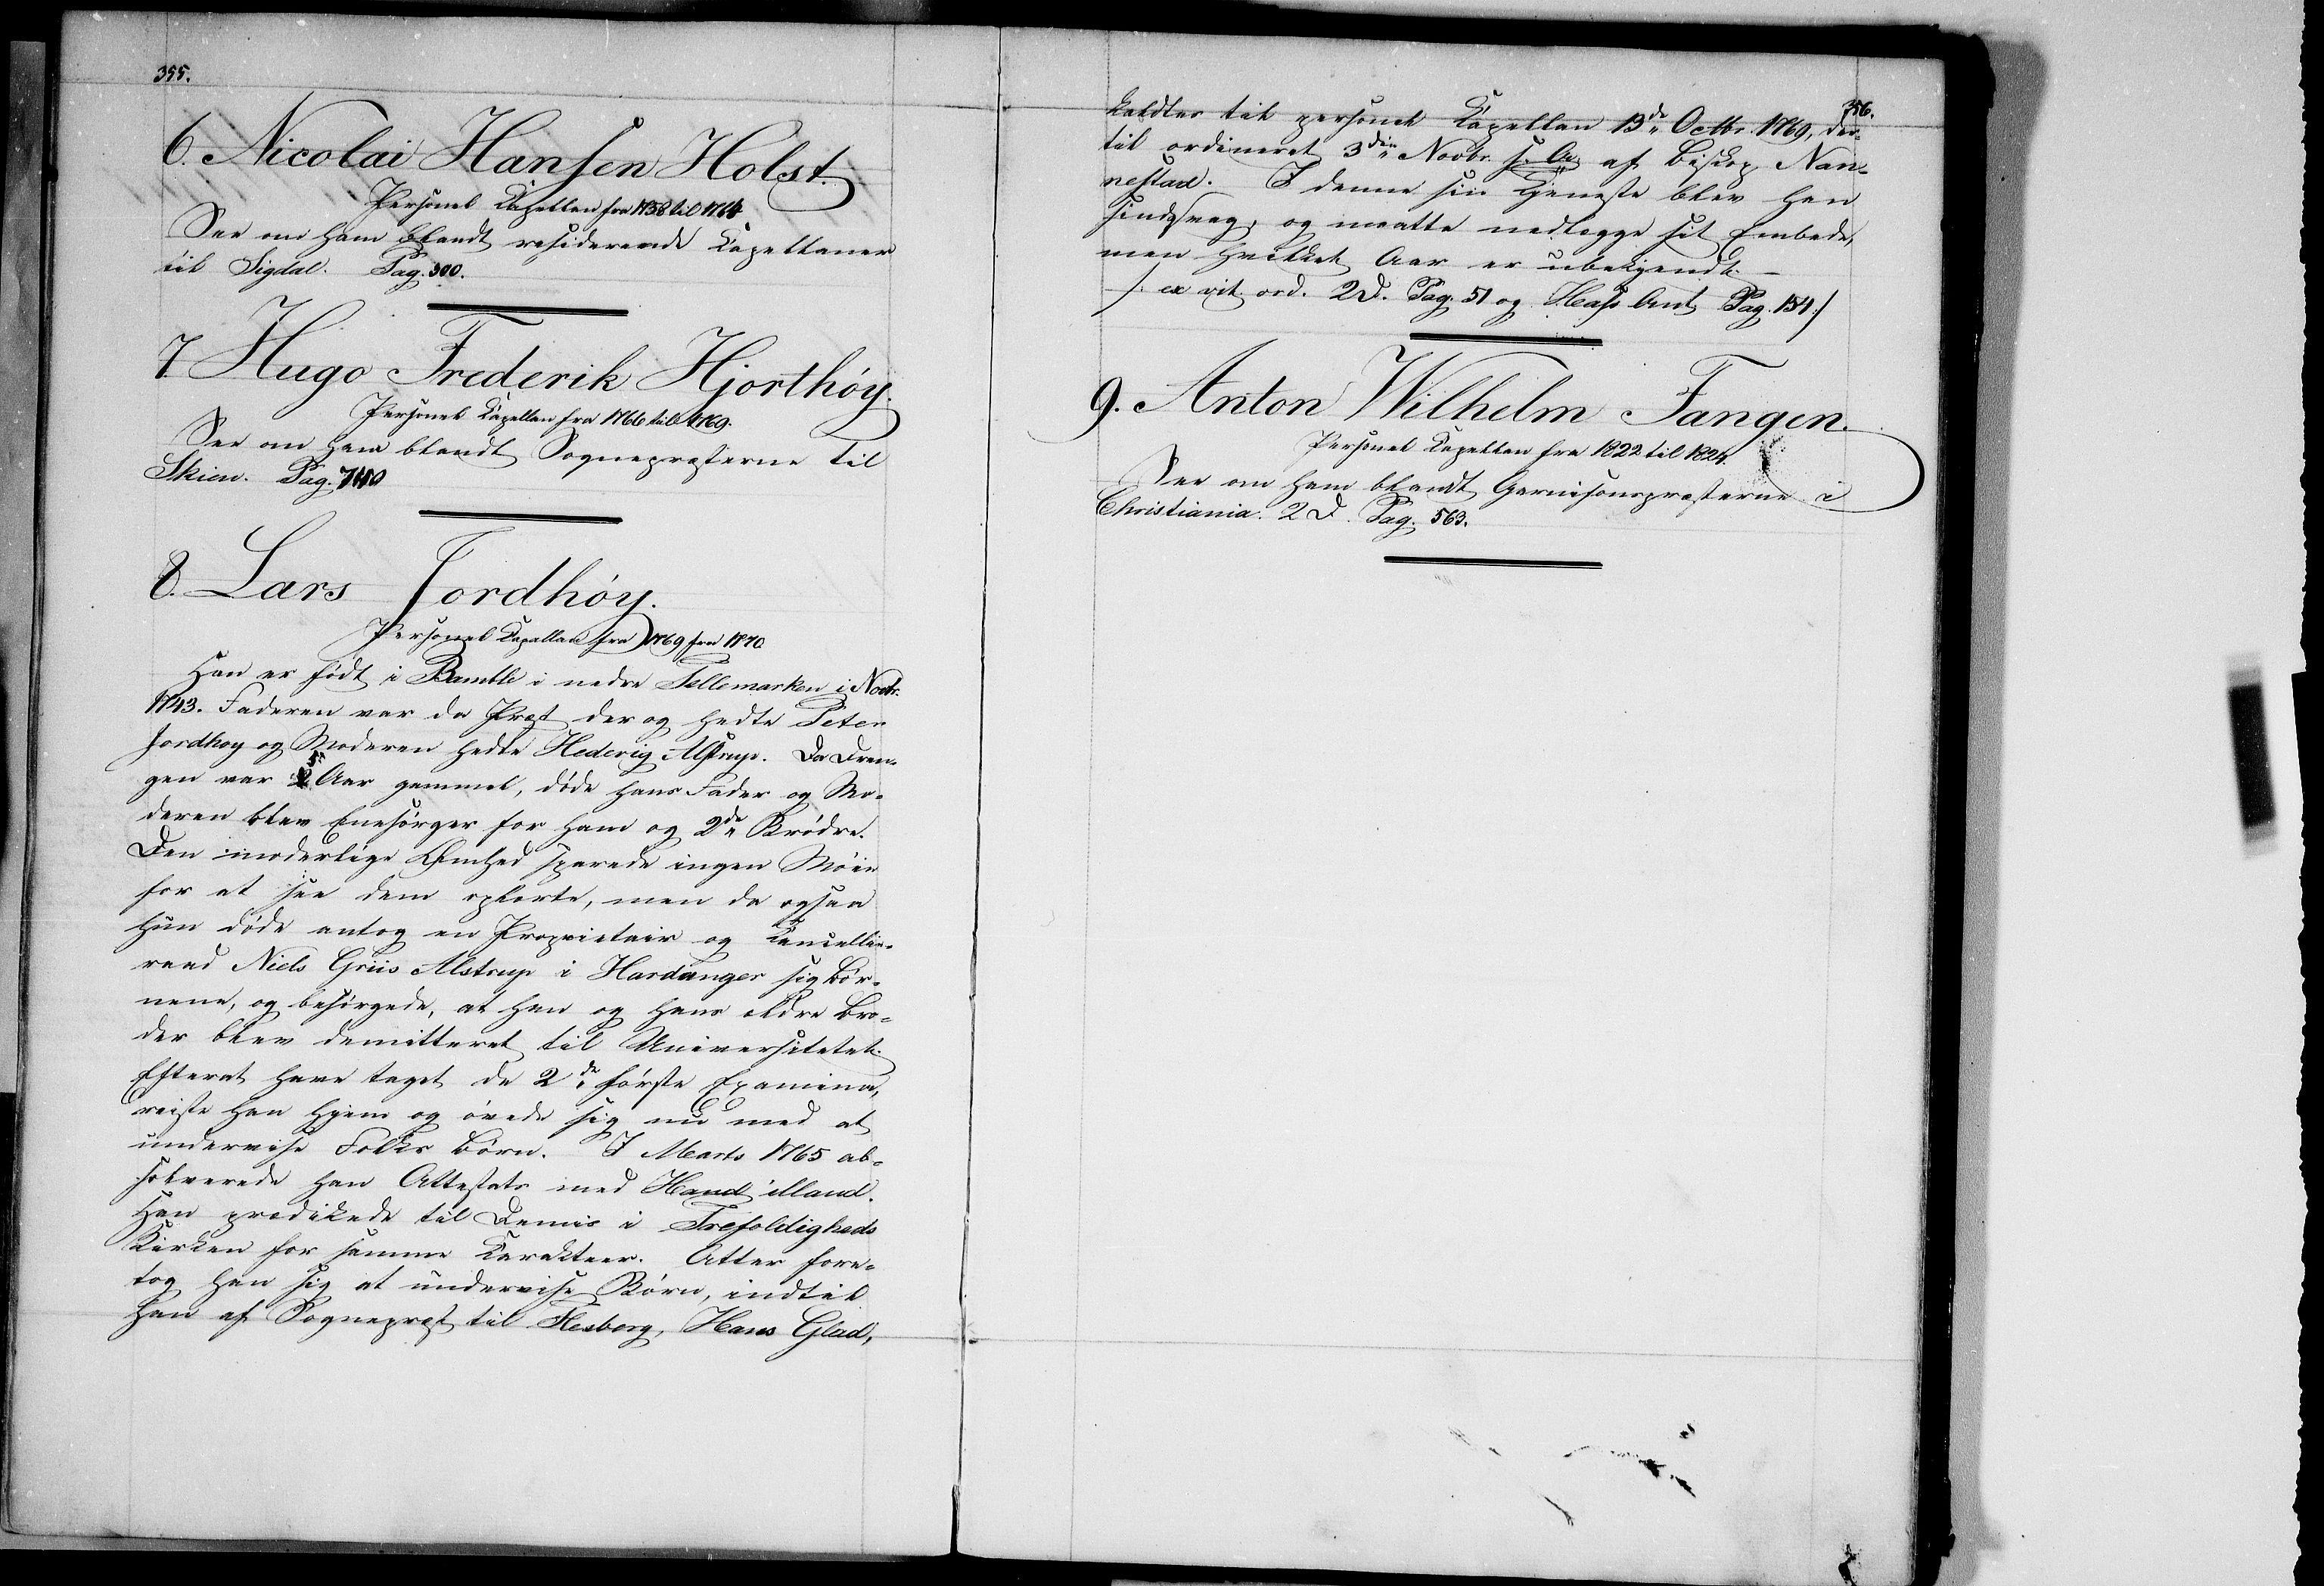 355.
6. Nicolai Hansen Holst.
Personel Kapellan fra 1758 til 1764
See om ham blandt residerende Kapellaner
til Sigdal. Pag. 300.
7. Hugo Frederik Hjorthöy.
Personel Kapellan fra 1766 til 1769.
See om ham blandt Sognepræsterne til
Skien. Pag. 740
8. Lars Jordhöy.
Personel Kapellan fra 1769 fra 1770
Han er födt i Bamble i nedre Tellemarken i Novbr.
1743. Faderen var da Præst der og hedte Peter
Jordhoy og Moderen hedte Hedevig Alstrup. Da Dren-
gen var Aar gammel, döde hans Fader og Mo-
deren blev Enesörger for ham og 2de Brödre.
Den moderlige Ömhed sparede ingen Möie
for at see dem oplærte, men da ogsaa
hun döde antog en Proprietair og Kancellie-
raad Niels Griis Alstrup i Hardanger sig Bör-
nene, og besörgede, at han og hans ældre Bro-
der blev demitteret til Universitetet.
Efterat have taget de 2de förste Examina,
reiste han hjem og övede sig nu med at
undervise Folks Börn. I Marts 1765 ab-
solverede han Attestats med Haud illaud.
Han prædikede til Demis i Trefoldigheds
Kirken for samme Karakteer. Atter fore-
tog han sig at undervise Börn, indtil
han af Sognepræst til Flesberg, Hans Glad,
356.
kaldtes til personel Kapellan 13de Octbr. 1769, der-
til ordineret 3die Novbr. s. A. af Biskop Nan-
nestad. I denne sin Tjeneste blev han
sindssvag, og maatte nedlægge sit Embede,
men hvilket Aar er ubekjendt. —
/: ex vit. ord. 2D. Pag. 51 og Hass Ant. Pag. 154:/
9. Anton Wilhelm Fangen.
Personel Kapellan fra 1822 til 1824.
See om ham blandt Garnisonspræsterne i
Christiania. 2 D. Pag. 563.